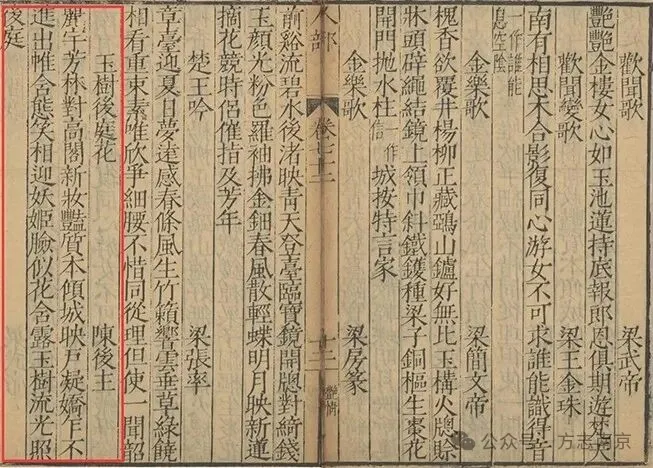 歡聞歌 梁武帝
艷艷金樓女心如玉池蓮持底報郎恩俱期遊梵天
歡聞變歌 梁王金珠
南有相思木合影復同心游女不可求誰能識得音
作誰能
息空陰
金樂歌 梁簡文帝
槐香欲覆井楊柳正藏鵶山鑪好無比玉構火牕賖
牀頭辟繩結鏡上領巾斜鐵鑊種梁子銅樞生棗花
開門抛水柱 作信 城按特言家
金樂歌 梁房篆
人部 卷七十二 十二 艷情
前谿流碧水後渚映青天登臺臨寶鏡開牕對綺錢
玉顏光粉色羅袖拂金鈿春風散輕蝶明月映新蓮
摘花競時侶催指及芳年
楚王吟 梁張率
章臺迎夏日夢遠感春條風生竹籟響雲垂草綠饒
相看重束素唯欣爭細腰不惜同從理但使一聞韶
玉樹後庭花 陳後主
麗宇芳林對高閣新妝艷質本傾城映戶凝嬌乍不
進出帷含態笑相迎妖姬臉似花含露玉樹流光照
後庭
公众号 · 方志南京